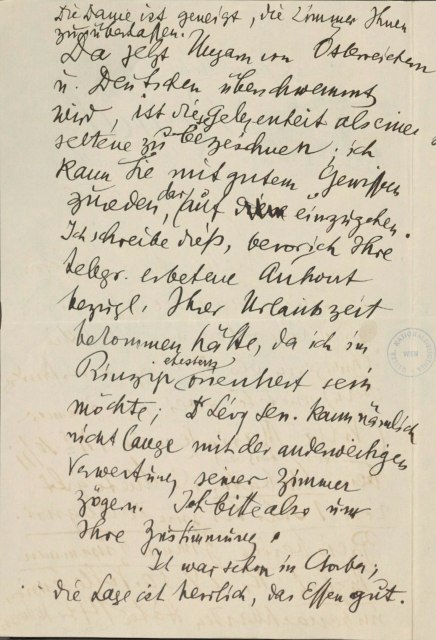 Die Dame ist geneigt, die Zimmer Ihnen
zu überlassen.
Da jetzt Ungarn von Österreichern
u. Deutschen überschwemmt
wird, ist die Gelegenheit als eine
seltene zu bezeichnen; ich
kann Sie mit gutem Gewissen
zureden, darauf einzugehen.
Ich schreibe dieß, bevor ich Ihre
telegr. erbetene Antwort
bezügl. Ihrer Urlaubszeit
bekommen hätte, da ich im
Prinzip ehestens orientiert sein
möchte; Dr Lévy sen. kann nämlich
nicht lange mit der anderweitigen
Verwertung seiner Zimmer
zögern. Ich bitte also um
Ihre Zustimmung.
Ich war schon in Csorba;
die Lage ist herrlich, das Essen gut.
WIEN